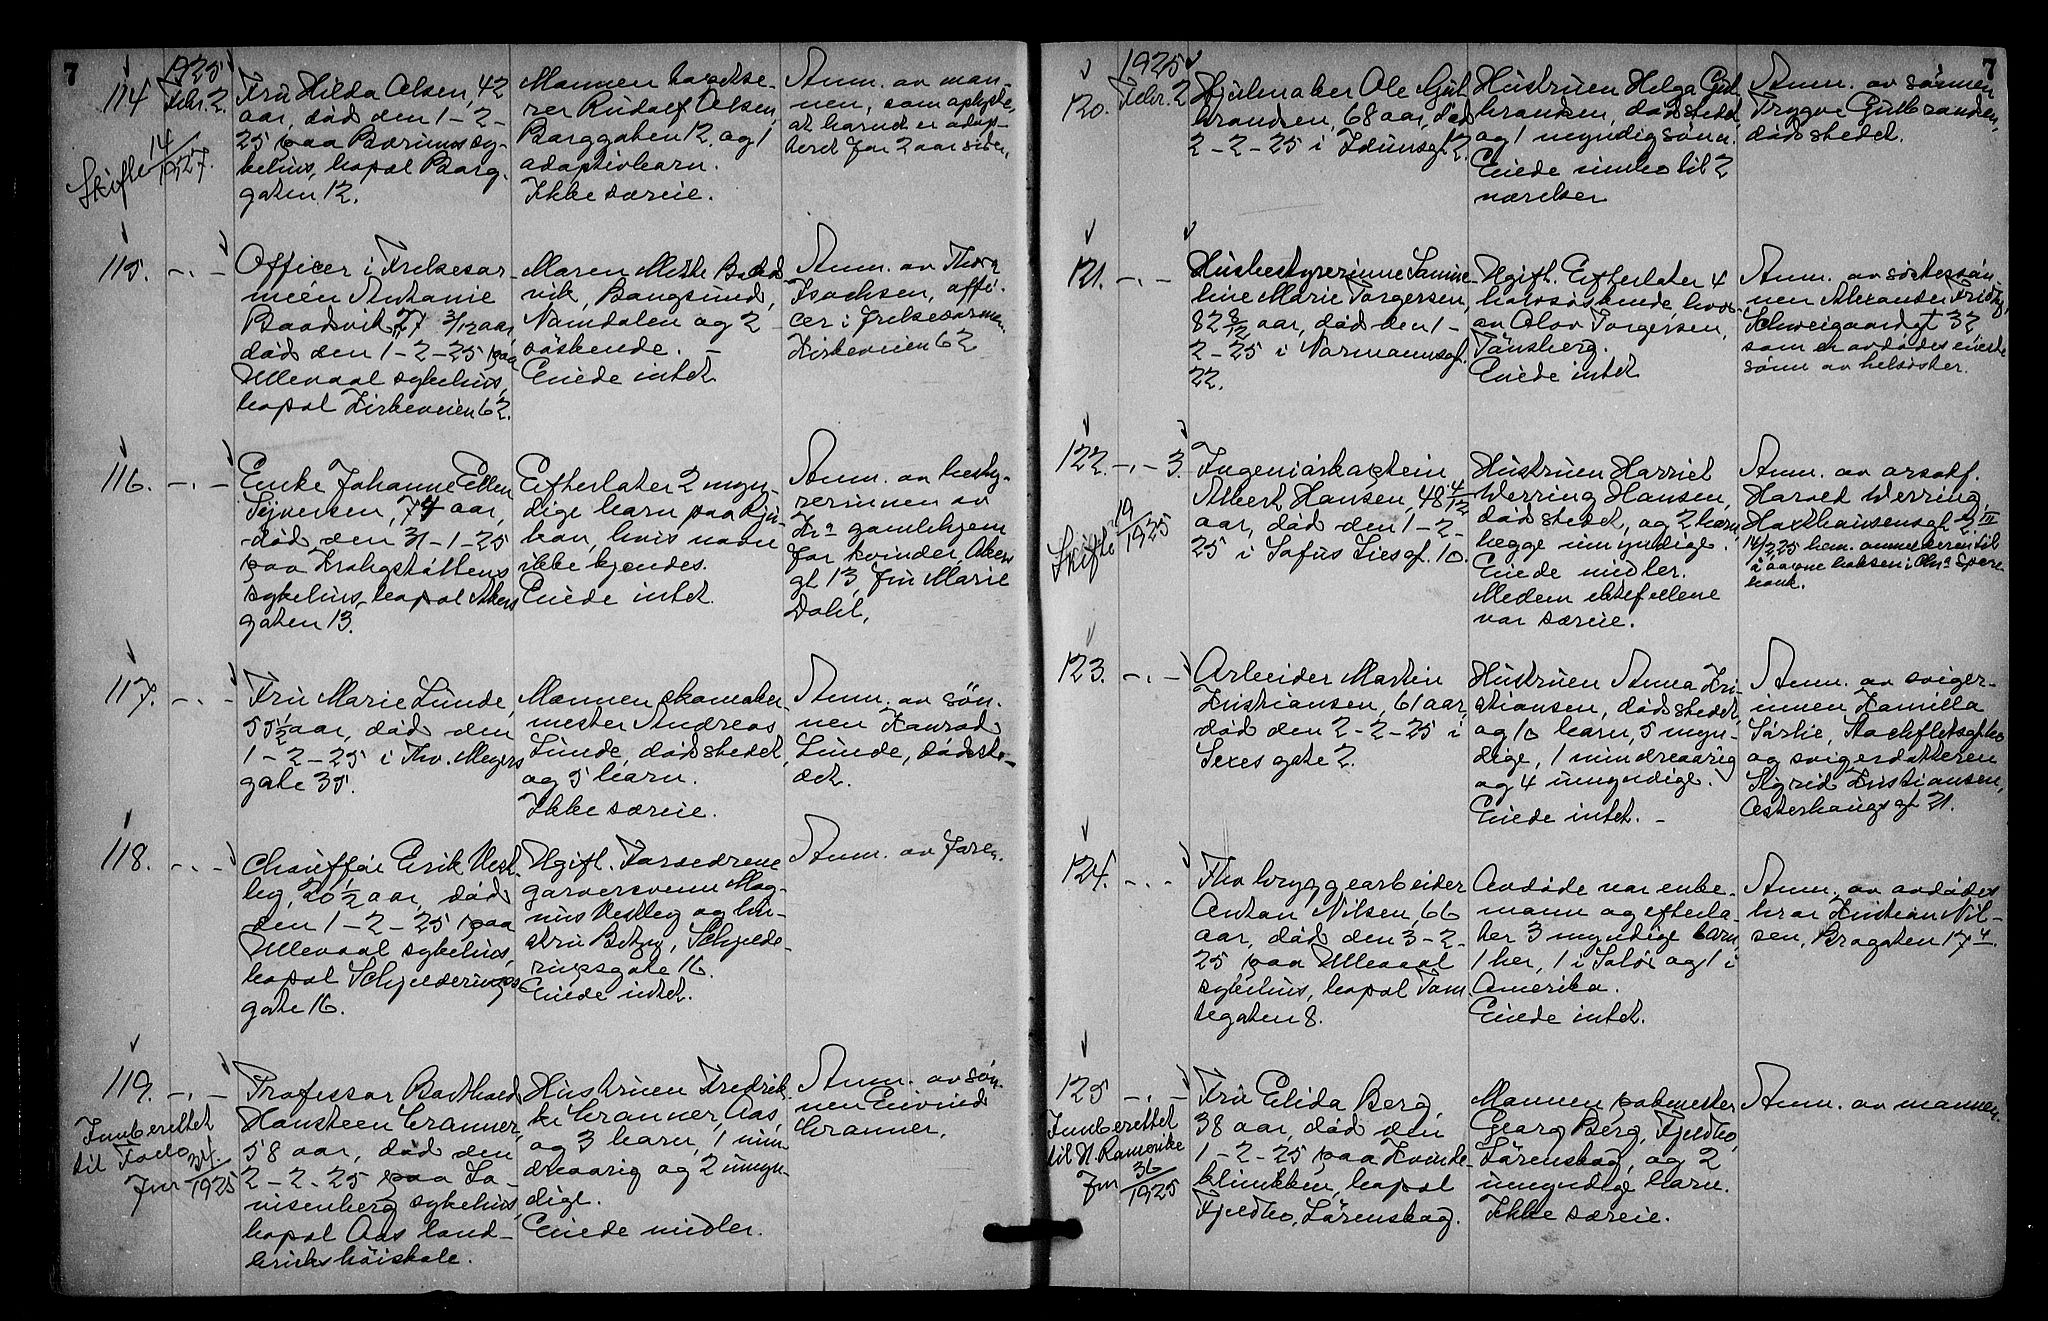 7
1925
114
Febr. 2
Fru Hilda Olsen, 42
aar, død den 1-2-
25 paa Bærums sy-
kehus, bopæl Borg-
gaten 12.
Skifte 14/1927.
Mannen
rer Rudolf Olsen,
Borggaten 12, og 1
adoptivbarn.
Ikke særeie.
Anm. av man-
nen, som oplyste,
at barnet er adop-
tert for 2 aar siden.
115. -.-
Officer i Frelsesar-
méen Antonie
Baadsvik, 27 3/12 aar,
død den 1-2-25 paa
Ullevaal sykehus,
bopæl Kirkeveien 62.
Moren Mette Baads
vik, Bangsund,
Namdalen og 2
søskende. -
Eiede intet
Anm. av Thora
Isachsen, offi-
cer i frelsesarmeen,
Kirkeveien 62
116. -.-
Enke Johanne Ellen
Syversen, 74 aar,
død den 31-1-25
paa Krohgstøttens
sykehus, bopæl Akers
gaten 13.
Efterlater 2 myn-
dige barn paa Rju-
kan, hvis navn
ikke kjendes.
Eiede intet.
Anm. av besty-
rerinnen av
Kra gamlehjem
for kvinder, Akers
gt 13, fru Marie
Dahl.
117. -.-
Fru Marie Lunde,
55 1/2 aar, død den
1-2-25 i Thv. Meyers
gate 35.
Mannen skomaker-
mester Andreas
Lunde, dødstedet,
og 5 barn.
Ikke særeie.
Anm. av søn-
nen Konrad
Lunde, dødste-
det.
118. -.-
Chauffør Erik Vest-
by, 20 1/2 aar, død
den 1-2-25 paa
Ullevaal sykehus,
bopæl Schjelderups
gate 16.
Ugift. Forældrene
garversvenn Mag-
nus Vestby og hu-
stru Betzy, Schjelde-
rupsgate 16.
Eiede intet.
Anm. av faren.
119. -.-
Innberettet
til Follo 31/
Jnr 1925
Professor Barthold
Hansteen Cranner,
58 aar, død den
2-2-25 paa Lo-
visenberg sykehus,
bopæl Aas land-
brukshøiskole.
Hustruen Fredrik-
ke Cranner, Aas,
og 3 barn, 1 min
dreaarig og 2 umyn-
dige.
Eiede midler.
Anm. av søn-
nen Eivind
Cranner.
7
1925
120.
Febr. 2
Hjulmaker Ole Gul
brandsen, 68 aar, død
2-2-25 i Idunsgt 2.
Hustruen Helga Gul
brandsen, dødstedet,
og 1 myndig sønn.
Eiede innbo til 2
værelser
Anm. av sønnen
Trygve Gulbrandsen,
dødstedet.
121. -.-
Husbestyrerinne
line Marie Torgersen,
82 8/12 aar, død den 1-
2-25 i Normannsgt.
22.
Ugift. Efterlater 4
halvsøskende, hvor-
av Olav Torgersen,
Tønsberg.
Eiede intet
Anm. av søstersøn
nen Alexander
Schweigaardsgt 32,
som er avdødes eneste
sønn av helsøster.
122. -.- 3.
Skifte 19/1925
Ingeniørkaptein
Albert Hansen, 48 4/12
aar, død den 1-2-
25 i Sofus Liesgt. 10.
Hustruen Harriet
Werring Hansen,
dødstedet, og 2 barn,
begge umyndige.
Eiede midler.
Mellem ektefellene
var særeie.
Anm. av orsakf.
Harald Werring,
Haxthausensgt
14/2 25 bem. anmelderen til
å aapne boksen i Chra Spare
bank.
123. -.-
Arbeider Martin
Kristiansen, 61 aar,
død den 2-2-25 i
Sexes gate 2.
Hustruen Anna Kri-
stiansen, dødstedet,
og 10 barn, 5 myn-
dige, 1 mindreaarig
og 4 umyndige.
Eiede intet. -
Anm. av sviger-
innen Kamilla
Sørlie,
og svigerdatteren
Sigrid Kristiansen,
Østerhausgt 21.
124. -.-
Fhv bryggearbeider
Anton Nilsen, 66
aar, død den 3-2-
25 paa Ullevaal
sykehus, bopæl Tom
tegaten 8.
Avdøde var enke-
mann og efterla-
ter 3 myndige barn,
1 her, 1 i Soløi og 1 i
Amerika.
Eiede intet.
Anm. av avdødes
bror Kristian Nil-
sen, Brogaten 17 4.
125 -.-
Innberettet
til N. Romerike
36
Jnr 1925
Fru Elida Berg,
38 aar, død den
1-2-25 paa Kvinde-
klinikken, bopæl
Fjeldbo, Lørenskog.
Mannen pakmester
Georg Berg, Fjeldbo,
Lørenskog, og 2
umyndige barn.
Ikke særeie.
Anm. av mannen.